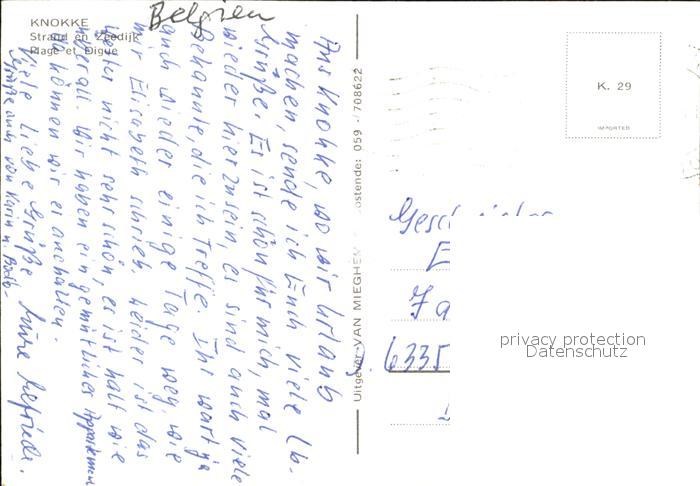 Belgien
KNOKKE
Strand en Zeedijk
Plage et Digue
Aus Knokke, wo wir Urlaub
machen, sende ich Euch viele lb.
Grüße. Es ist schön für mich, mal
wieder hier zu sein, es sind auch viele
Bekannte, die ich treffe. Ihr wart ja
auch wieder einige Tage weg, wie
mir Elisabeth schrieb. Leider ist das
Wetter nicht sehr schön, es ist halt wie
überall. Wir haben ein gemütliches Appartement
da können wir es aushalten.
Viele liebe Grüße Eure Elfriede.
Grüße auch von Karin u. Bodo
Uitgever VAN MIEGHEM
ostende: 059 - 708622
K. 29
IMPORTED
6335
privacy protection
Datenschutz